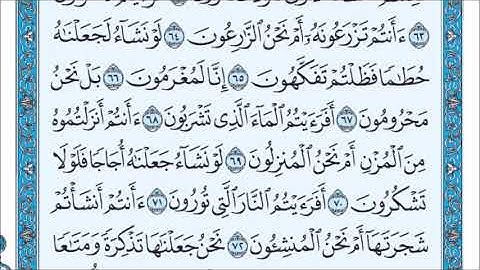 ٦٣ ءَأَنتُمْ تَزْرَعُونَهُۥٓ أَمْ نَحْنُ ٱلزَّٰرِعُونَ ٦٤ لَوْ نَشَآءُ لَجَعَلْنَٰهُ
حُطَٰمًا فَظَلْتُمْ تَفَكَّهُونَ ٦٥ إِنَّا لَمُغْرَمُونَ ٦٦ بَلْ نَحْنُ
مَحْرُومُونَ ٦٧ أَفَرَءَيْتُمُ ٱلْمَآءَ ٱلَّذِى تَشْرَبُونَ ٦٨ ءَأَنتُمْ أَنزَلْتُمُوهُ
مِنَ ٱلْمُزْنِ أَمْ نَحْنُ ٱلْمُنزِلُونَ ٦٩ لَوْ نَشَآءُ جَعَلْنَٰهُ أُجَاجًا فَلَوْلَا
تَشْكُرُونَ ٧٠ أَفَرَءَيْتُمُ ٱلنَّارَ ٱلَّتِى تُورُونَ ٧١ ءَأَنتُمْ أَنشَأْتُمْ
شَجَرَتَهَآ أَمْ نَحْنُ ٱلْمُنشِـُٔونَ ٧٢ نَحْنُ جَعَلْنَٰهَا تَذْكِرَةً وَمَتَٰعًا